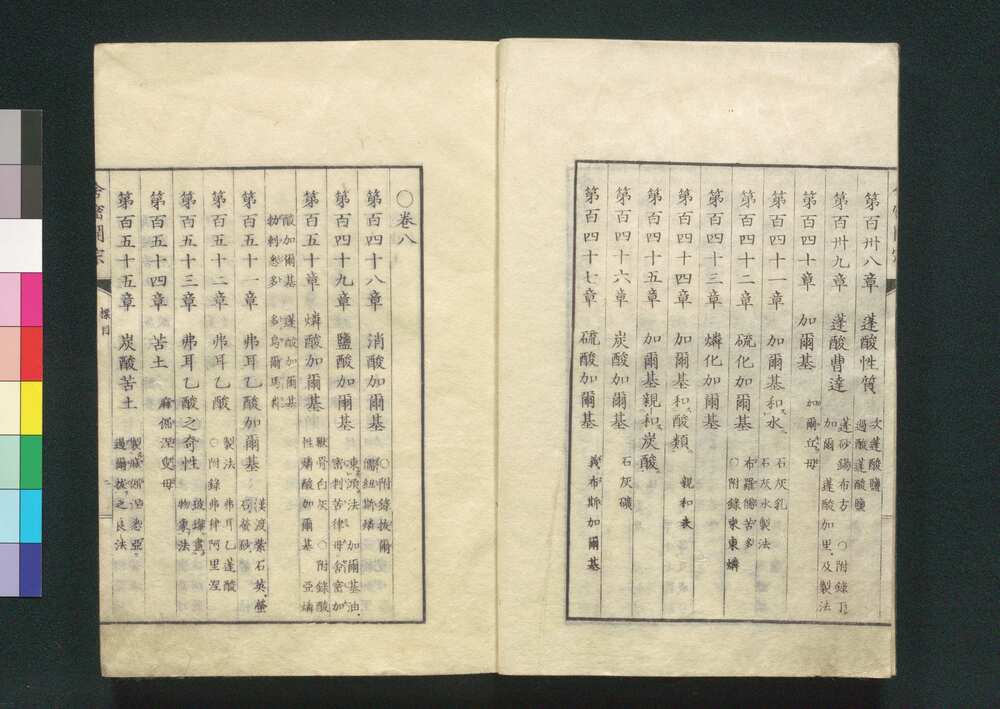 第百卅八章 蓬酸性質 次蓬酸鹽 過酸蓬酸鹽
第百卅九章 蓬酸曹達 蓬砂錫布古 ○附錄 加爾 蓬酸加里及製法
第百四十章 加爾基 加爾丘母
第百四十一章 加爾基和水 石灰乳 石灰水製法
第百四十二章 硫化加爾基 布羅 苦多 ○附錄東東燐
第百四十三章 燐化加爾基
第百四十四章 加爾基和酸類 親和表
第百四十五章 加爾基親和炭酸
第百四十六章 炭酸加爾基 石灰礦
第百四十七章 硫酸加爾基 義布斯加爾基
○卷八
第百四十八章 消酸加爾基 ○附錄拔爾 紐斯燐
第百四十九章 鹽酸加爾基 法 加爾基油
第百五十章 燐酸加爾基 獸骨白灰 ○附錄酸 性燐酸加爾基 亞燐
酸加爾基 蓬酸加爾基
第百五十一章 弗耳乙酸加爾基 漢渡紫石英 螢石 螢砂
第百五十二章 弗耳乙酸 製法 弗耳乙蓬酸 ○附錄弗律阿里涅
第百五十三章 弗耳乙酸之奇性 玻璃畫 物象法
第百五十四章 苦土 麻倔涅叟母
第百五十五章 炭酸苦土 製麻倔涅 之良法
標目